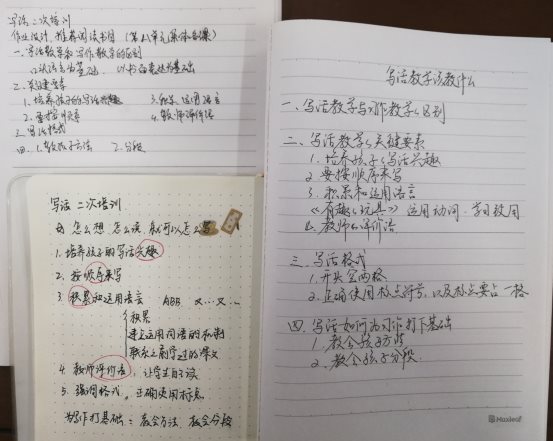 写话 二次培训
作业设计、推荐阅读书目（第八单元集体备课）
一、写话教学和写作教学的区别
以说为基础 以书面表达为基础
二、关键要素
1. 培养孩子的写话兴趣 3. 积累、运用语言
2. 要按顺序来写 4. 教师评价语
三、写话格式
四、1. 教孩子方法 2. 分段
写话 二次培训
怎么想 怎么说 就可以怎么写
1. 培养孩子的写话兴趣
2. 按顺序来写
3. 积累和运用语言 ABB 又…又…
积累
建立运用词语的机制
联系之前学过的课文
4. 教师评价语，让学生自己读
5. 强调格式，正确使用标点
为写作打基础：教会方法、教会分段
写话教学该教什么
一、写话教学与习作教学的区别
二、写话教学的关键要素
1. 培养孩子的写话兴趣
2. 要按顺序来写
3. 积累和运用语言
《有趣的玩具》运用动词，学以致用
4. 教师的评价语
三、写话格式
1. 开头空两格
2. 正确使用标点符号，以及标点要占一格
四、写话如何为习作打下基础
1. 教会孩子方法
2. 教会孩子分段.
Huxleaf